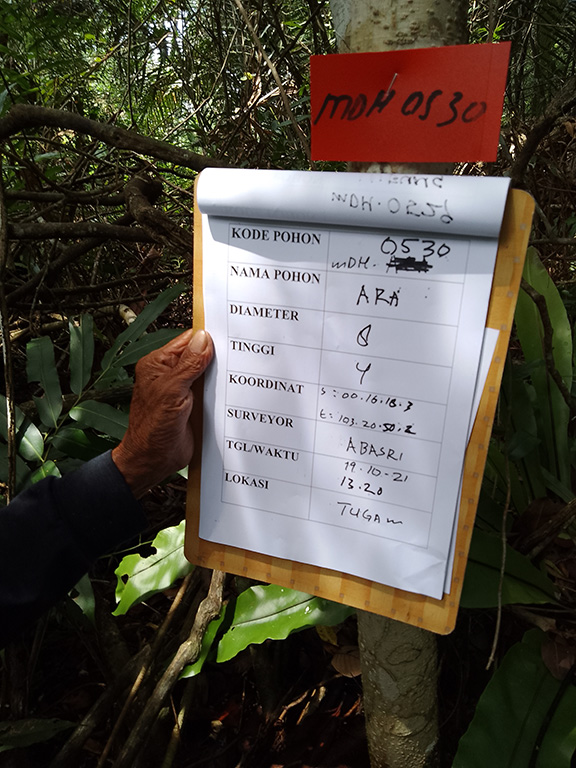 MDH 0530
MDH. 0526
KODE POHON
0530
MDH.
NAMA POHON
ARA
DIAMETER
8
TINGGI
4
KOORDINAT
S = 00.16.18.3
E = 103.20.50.2
SURVEYOR
ABASRI
TGL/WAKTU
19-10-21
13.20
LOKASI
TUGAM